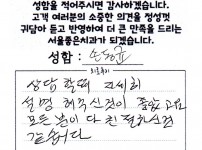 성함을 적어주시면 감사하겠습니다.
고객 여러분의 소중한 의견을 정성껏
귀담아 듣고 반영하여 더 큰 만족을 드리는
서울좋은치과가 되겠습니다.
성함 : 손동균
상담 할때 자세히
설명 해주신것이 좋았고요
모든 분이 다 친절하신것
같습니다